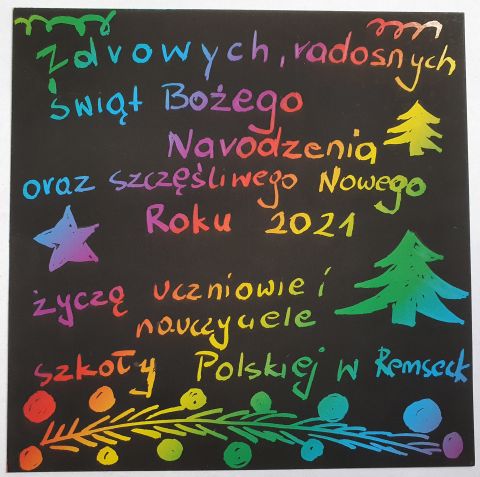 Zdrowych, radosnych
świąt Bożego
Narodzenia
oraz szczęśliwego Nowego
Roku 2021
życzą uczniowie i
nauczyciele
szkoły Polskiej w Remseck